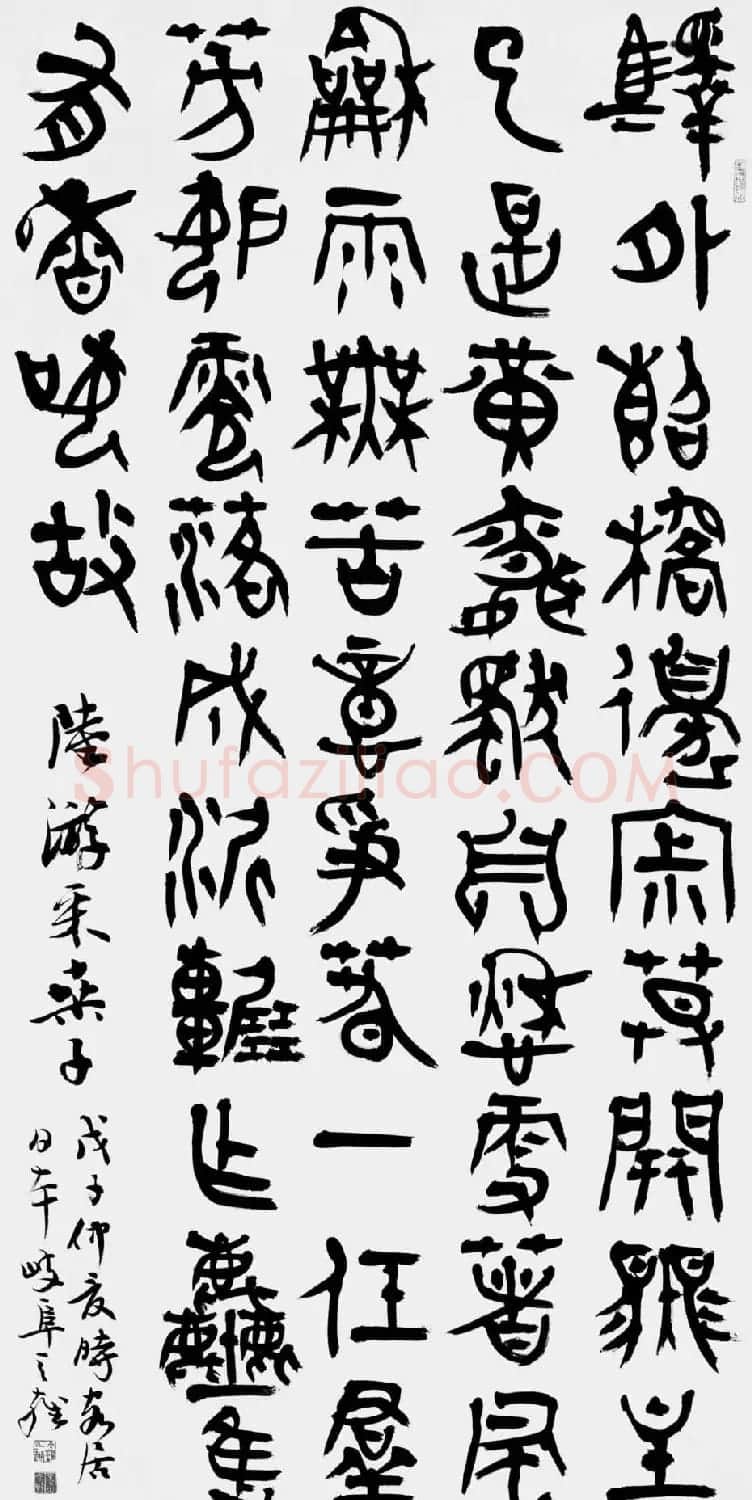 驛外斷橋邊寂寞開無主
已是黃昏獨自愁更著風
龢雨無苦意爭春一任羣
芳妒零落成泥輾作塵隻
有香如故
陸游采桑子
戊子仲夏時客居
日本岐阜之
Shufaziliao.COM